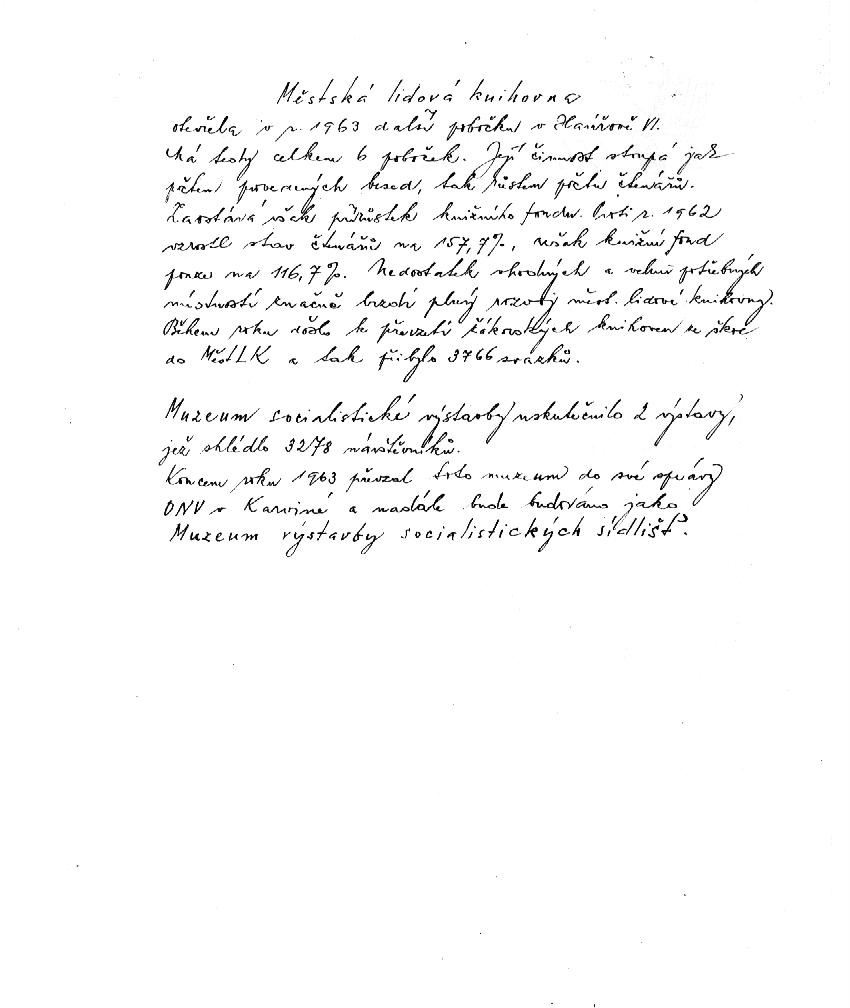 Městská lidová knihovna
otevřela v r. 1963 další pobočku v Havířově VI.
Má tedy celkem 6 poboček. Její činnost stoupá jak
počtem provedených besed, tak růstem počtu čtenářů.
Zaostává však přírůstek knižního fondu. Proti r. 1962
vzrostl stav čtenářů na 157,7%, však knižní fond
pouze na 116,7%. Nedostatek vhodných a velmi potřebných
místností značně brzdí plný rozvoj měst. lidové knihovny.
Během roku došlo k převzetí žákovských knihoven ze škol
do MěstLK a tak přibylo 3766 svazků.
Muzeum socialistické výstavby uskutečnilo 2 výstavy,
jež shlédlo 3278 návštěvníků.
Koncem roku 1963 převzal toto muzeum do své správy
ONV v Karviné a nadále bude budováno jako
Muzeum výstavby socialistických sídlišť.